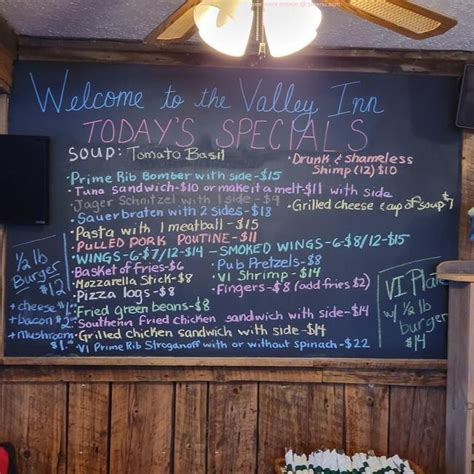 Welcome to the Valley Inn
TODAY'S SPECIALS
SOUP: Tomato Basil
• Drunk & Shameless
Shimp (12) $10
• Grilled cheese & cup of soup $7
• Prime Rib Bomber with side - $15
• Tuna sandwich - $10 or make it a melt - $11 with side
Jager Schnitzel with 1 side - $9
• Sauerbraten with 2 sides - $18
• Pasta with 1 meatball - $15
• PULLED PORK POUTINE - $11
• WINGS - 6-$7/12-$14 - SMOKED WINGS - 6-$8/12-$15
Basket of fries - $6
• Pub Pretzels - $8
Mozzarella Stick - $8
• VI Shrimp - $14
• Pizza logs - $8
• Fingers - $8 (add fries $2)
• Fried green beans - $8
• Southern fried chicken sandwich with side - $14
• Grilled chicken sandwich with side - $14
• VI Prime Rib Stroganoff with or without spinach - $22
½ lb
Burger
$12
+ cheese
+ bacon $2
+ mushroom
$1
VI Plate
w/ ½ lb
burger
$14